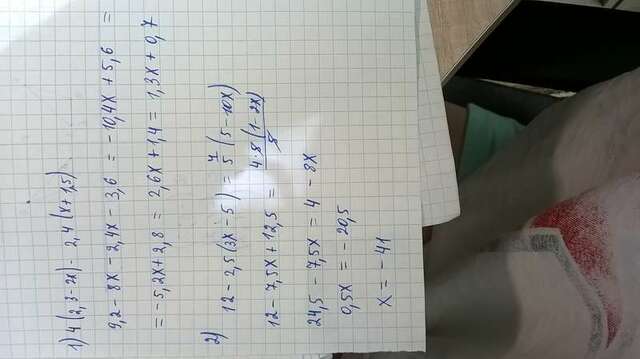 1) 4(2,3-2x)-2,4(x+1,5)
9,2-8x-2,4x-3,6 = -10,4x+5,6 =
= -5,2x+2,8 = 2,6x+1,4 = 1,3x+0,7
2) 12-2,5(3x-5) = 4/5 (5-10x)
12-7,5x+12,5 = 4·8(1-2x)/8
24,5-7,5x = 4-8x
0,5x = -20,5
x = -41